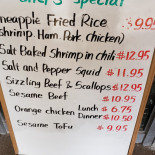 Chef's Special
Pineapple Fried Rice $9.95
(shrimp. Ham. Pork chicken)
Salt Baked Shrimp in chili $12.95
Salt and Pepper Squid $11.95
Sizzling Beef & Scallops $12.95
Sesame Beef $10.95
Orange chicken Lunch $6.75
Dinner $10.50
Sesame Tofu $9.95